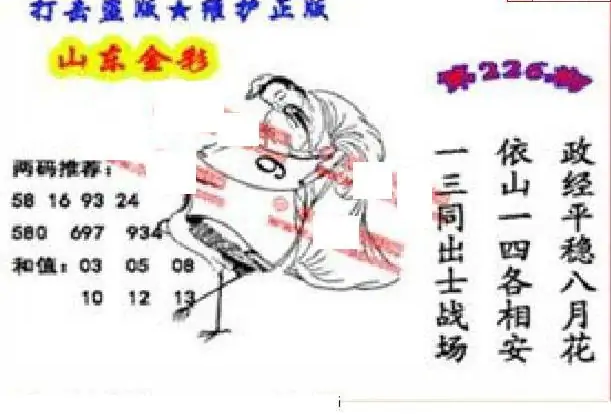 打击盗版★维护正版
山东金彩
226
两码推荐：
58 16 93 24
580 697 934
和值：03 05 08
10 12 13
9
政经平稳八月花
依山一四各相安
一三同出士战场